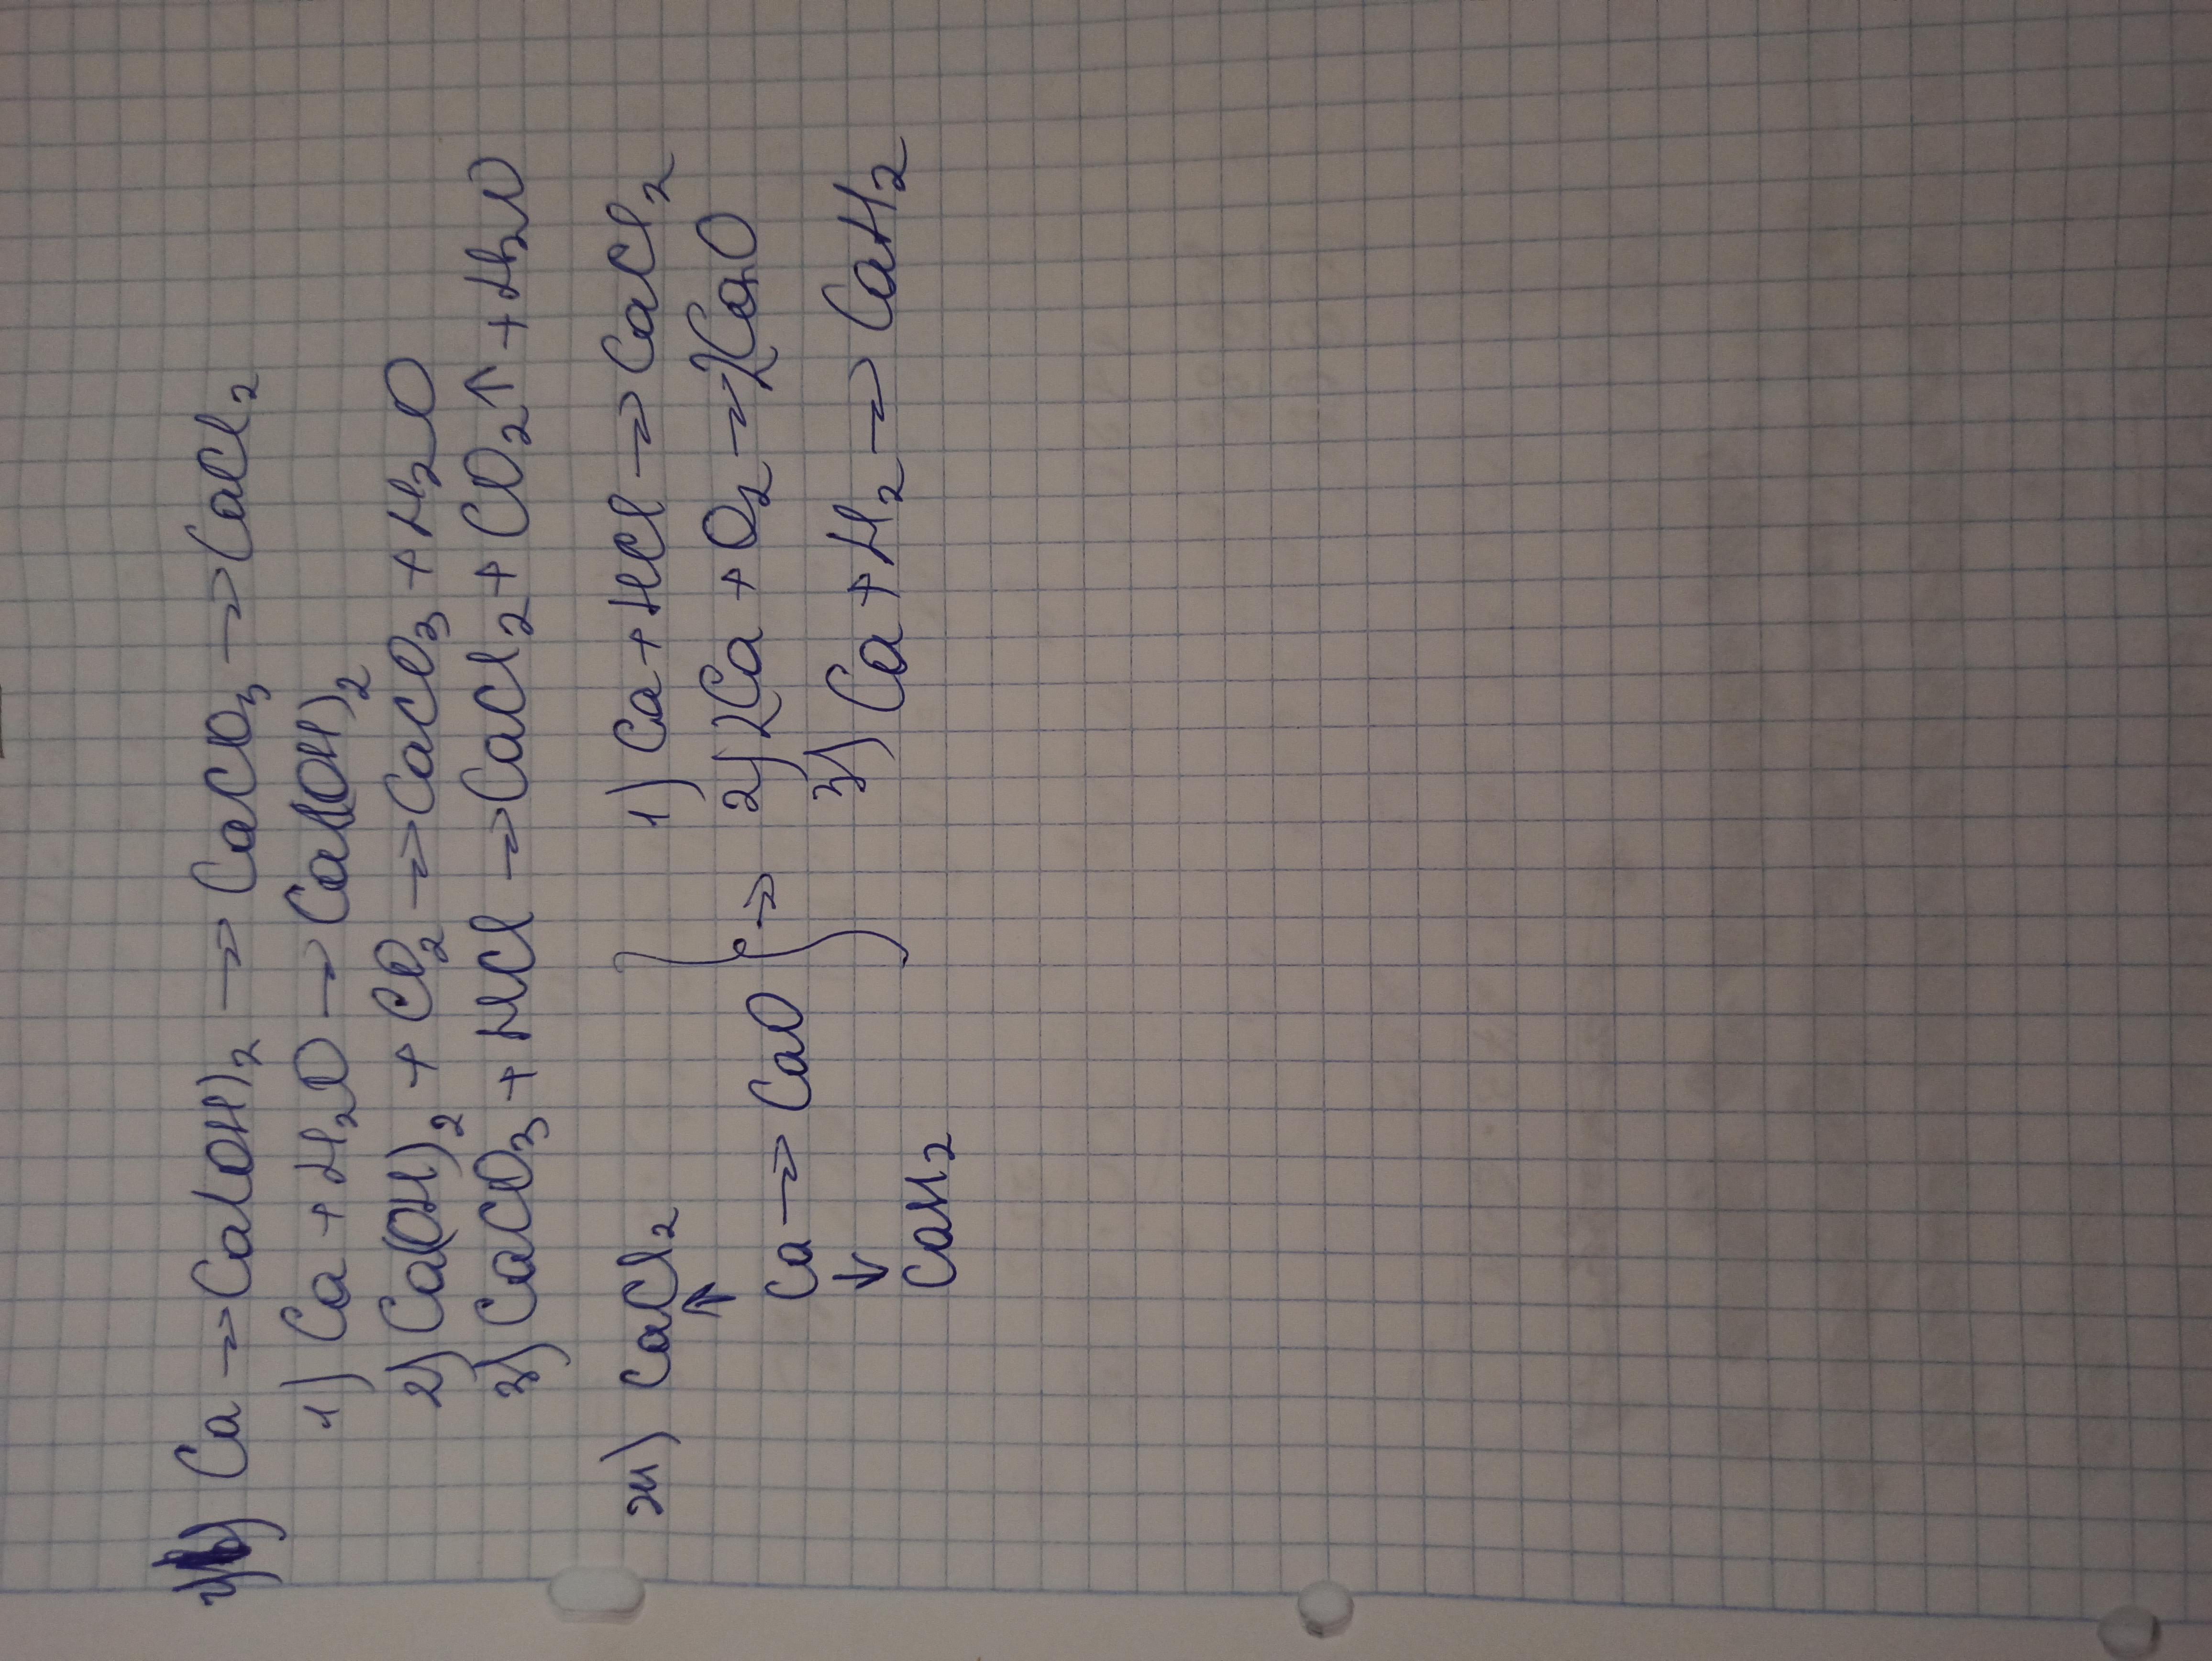 Ca → Ca(OH)₂ → CaCO₃ → CaCl₂
1) Ca + H₂O → Ca(OH)₂
2) Ca(OH)₂ + CO₂ → CaCO₃ + H₂O
3) CaCO₃ + HCl → CaCl₂ + CO₂↑ + H₂O
ж) CaCl₂
↑
Ca → CaO } →
↓
CaH₂
1) Ca + HCl → CaCl₂
2) 2Ca + O₂ → 2CaO
3) Ca + H₂ → CaH₂